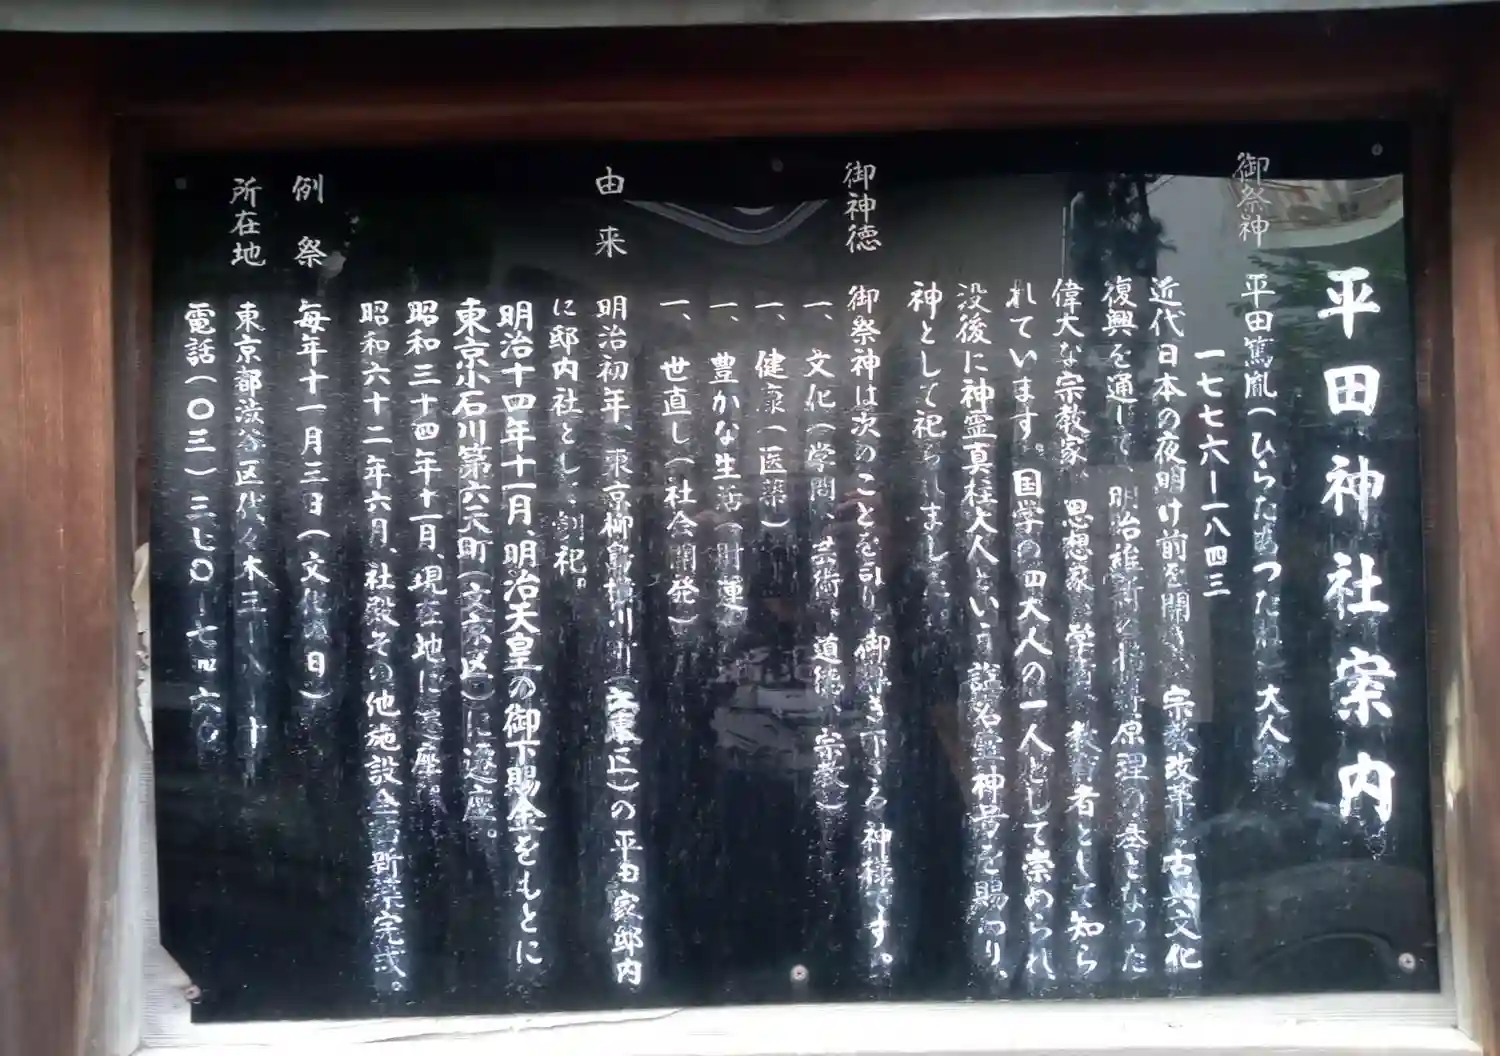 平田神社案内
御祭神 平田篤胤(ひらたあつたね)大人命
一七七六ー一八四三
近代日本の夜明け前を開き、宗教改革、古典文化
復興を通して、明治維新の指導原理の基となった
偉大な宗教家、思想家、学者、教育者として知ら
れています。国学の四大人の一人として崇められ、
没後に神霊真柱大人という諡名霊神号を賜わり、
神として祀られました。
御神徳 御祭神は次のことを司り、御導き下さる神様です。
一、文化(学問、芸術、道徳、宗教)
一、健康(医薬)
一、豊かな生活(財運)
一、世直し(社会開発)
由来 明治初年、東京柳島横川町(文東正)の平田家邸内
に邸内社として創祀。
明治十四年十一月、明治天皇の御下賜金をもとに
東京小石川第六天町(文京区)に遷座。
昭和三十四年十一月、現在地に遷座。
昭和六十二年六月、社殿その他施設全部新築完成。
例祭 毎年十一月三日(文化の日)
所在地 東京都渋谷区代々木三ー八ー十
電話(〇三)三七〇ー七四六〇